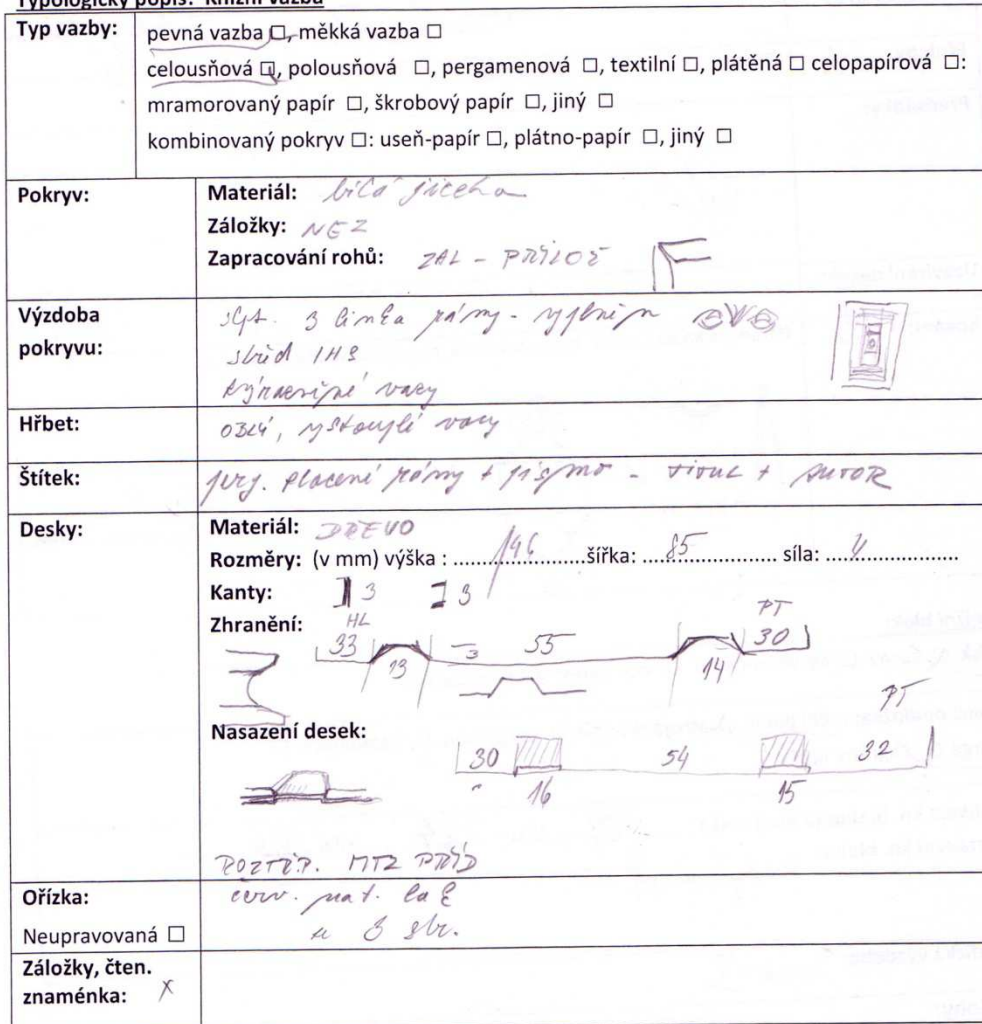 Typologický popis: Knižní vazba
Typ vazby:
pevná vazba □, měkká vazba □
celousňová □, polousňová □, pergamenová □, textilní □, plátěná □ celopapírová □:
mramorovaný papír □, škrobový papír □, jiný □
kombinovaný pokryv □: useň-papír □, plátno-papír □, jiný □
Pokryv:
Materiál: bílá jircha
Záložky: NEZ
Zapracování rohů: ZAL - PŘÍLOŽ
Výzdoba pokryvu:
3 linka rámy -
střed IHS
vazy
Hřbet:
OBLÝ, vystouplé vazy
Štítek:
perg. zlacené rámy + písmo - TITUL + AUTOR
Desky:
Materiál: DŘEVO
Rozměry: (v mm) výška : 146 šířka: 85 síla: 4
Kanty: 3 3
Zhranění: HL PT
33 13 3 55 14 30
Nasazení desek: PT
30 16 54 15 32
ROZTŘP. PŘÍD
Ořízka:
červ. nat. lak
Neupravovaná □
u 3 str.
Záložky, čten.
znaménka: X